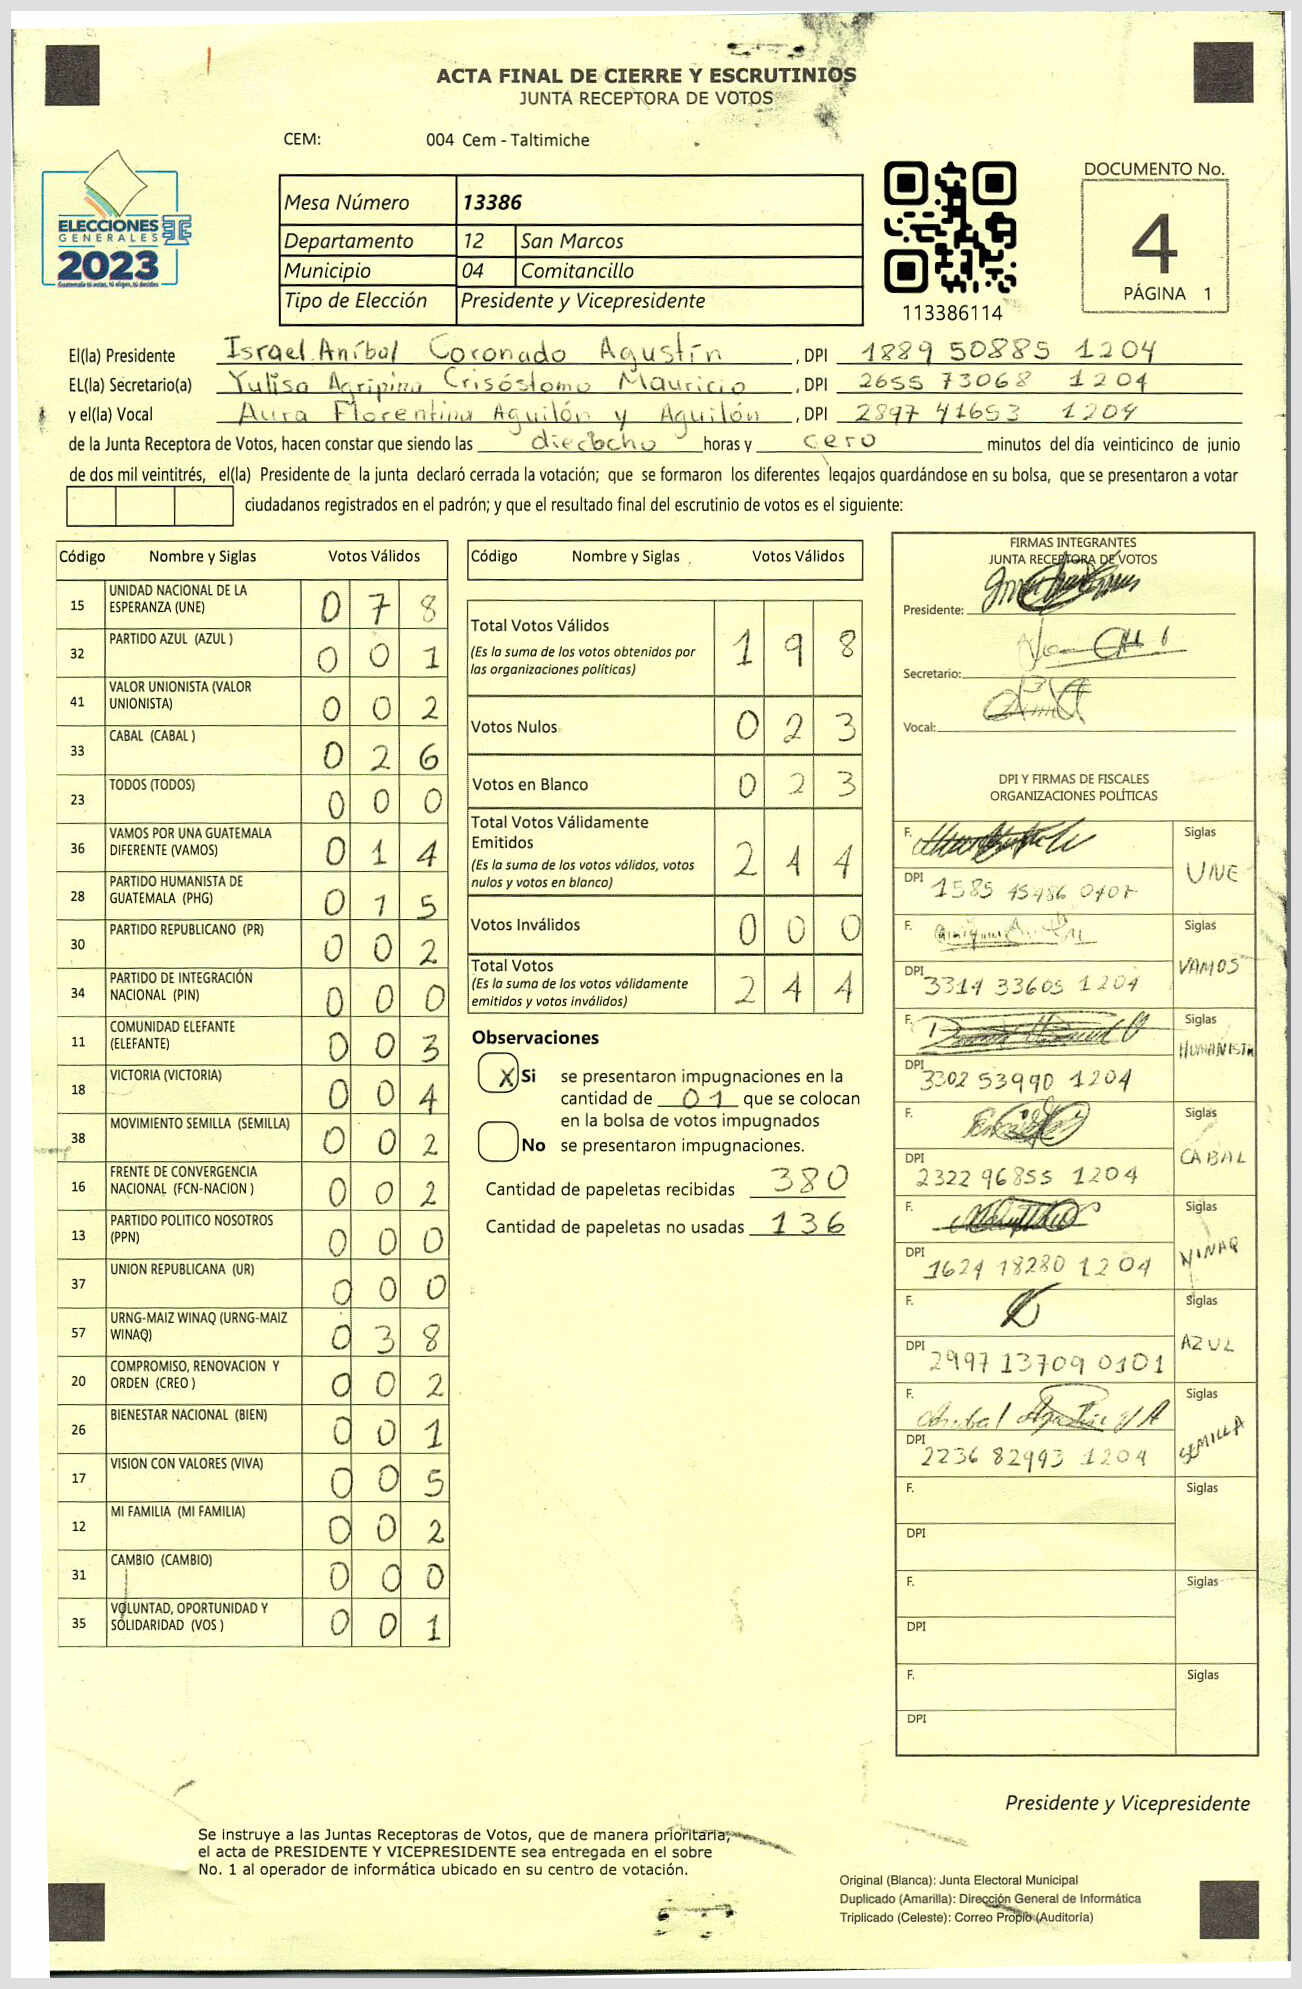 ACTA FINAL DE CIERRE Y ESCRUTINIOS
JUNTA RECEPTORA DE VOTOS
CEM: 004 Cem - Taltimiche
ELECCIONES
GENERALES
2023
Guatemala tú votas, tú eliges, tú decides
Mesa Número 13386
Departamento 12 San Marcos
Municipio 04 Comitancillo
Tipo de Elección Presidente y Vicepresidente
113386114
DOCUMENTO No.
4
PÁGINA 1
El(la) Presidente Israel Aníbal Coronado Agustín , DPI 1889 50885 1204
EL(la) Secretario(a) Yulisa Agripina Crisóstomo Mauricio , DPI 2655 73068 1204
y el(la) Vocal Aura Florentina Aguilón y Aguilón , DPI 2897 41653 1204
de la Junta Receptora de Votos, hacen constar que siendo las dieciocho horas y cero minutos del día veinticinco de junio
de dos mil veintitrés, el(la) Presidente de la junta declaró cerrada la votación; que se formaron los diferentes legajos quardándose en su bolsa, que se presentaron a votar
ciudadanos registrados en el padrón; y que el resultado final del escrutinio de votos es el siguiente:
Código Nombre y Siglas Votos Válidos
15 UNIDAD NACIONAL DE LA ESPERANZA (UNE) 0 7 8
32 PARTIDO AZUL (AZUL ) 0 0 1
41 VALOR UNIONISTA (VALOR UNIONISTA) 0 0 2
33 CABAL (CABAL ) 0 2 6
23 TODOS (TODOS) 0 0 0
36 VAMOS POR UNA GUATEMALA DIFERENTE (VAMOS) 0 1 4
28 PARTIDO HUMANISTA DE GUATEMALA (PHG) 0 1 5
30 PARTIDO REPUBLICANO (PR) 0 0 2
34 PARTIDO DE INTEGRACIÓN NACIONAL (PIN) 0 0 0
11 COMUNIDAD ELEFANTE (ELEFANTE) 0 0 3
18 VICTORIA (VICTORIA) 0 0 4
38 MOVIMIENTO SEMILLA (SEMILLA) 0 0 2
16 FRENTE DE CONVERGENCIA NACIONAL (FCN-NACION ) 0 0 2
13 PARTIDO POLITICO NOSOTROS (PPN) 0 0 0
37 UNION REPUBLICANA (UR) 0 0 0
57 URNG-MAIZ WINAQ (URNG-MAIZ WINAQ) 0 3 8
20 COMPROMISO, RENOVACION Y ORDEN (CREO ) 0 0 2
26 BIENESTAR NACIONAL (BIEN) 0 0 1
17 VISION CON VALORES (VIVA) 0 0 5
12 MI FAMILIA (MI FAMILIA) 0 0 2
31 CAMBIO (CAMBIO) 0 0 0
35 VOLUNTAD, OPORTUNIDAD Y SOLIDARIDAD (VOS ) 0 0 1
Código Nombre y Siglas Votos Válidos
Total Votos Válidos 1 9 8
(Es la suma de los votos obtenidos por
las organizaciones políticas)
Votos Nulos 0 2 3
Votos en Blanco 0 2 3
Total Votos Válidamente
Emitidos 2 4 4
(Es la suma de los votos válidos, votos
nulos y votos en blanco)
Votos Inválidos 0 0 0
Total Votos 2 4 4
(Es la suma de los votos válidamente
emitidos y votos inválidos)
Observaciones
X Si se presentaron impugnaciones en la
cantidad de 01 que se colocan
en la bolsa de votos impugnados
No se presentaron impugnaciones.
Cantidad de papeletas recibidas 380
Cantidad de papeletas no usadas 136
FIRMAS INTEGRANTES
JUNTA RECEPTORA DE VOTOS
Presidente:
Secretario:
Vocal:
DPI Y FIRMAS DE FISCALES
ORGANIZACIONES POLÍTICAS
F. Siglas
UNE
DPI 1585
F. Siglas
VAMOS
DPI 3314 33605 1204
F. Siglas
HUMANISTA
DPI 3302 53990 1204
F. Siglas
CABAL
DPI 2322 96855 1204
F. Siglas
WINAQ
DPI 1624 18280 1204
F. Siglas
AZUL
DPI 2997 13709 0101
F. Siglas
SEMILLA
DPI 2236 82993 1204
F. Siglas
DPI
F. Siglas
DPI
F. Siglas
DPI
Presidente y Vicepresidente
Se instruye a las Juntas Receptoras de Votos, que de manera prioritaria,
el acta de PRESIDENTE Y VICEPRESIDENTE sea entregada en el sobre
No. 1 al operador de informática ubicado en su centro de votación.
Original (Blanca): Junta Electoral Municipal
Duplicado (Amarilla): Dirección General de Informática
Triplicado (Celeste): Correo Propio (Auditoría)